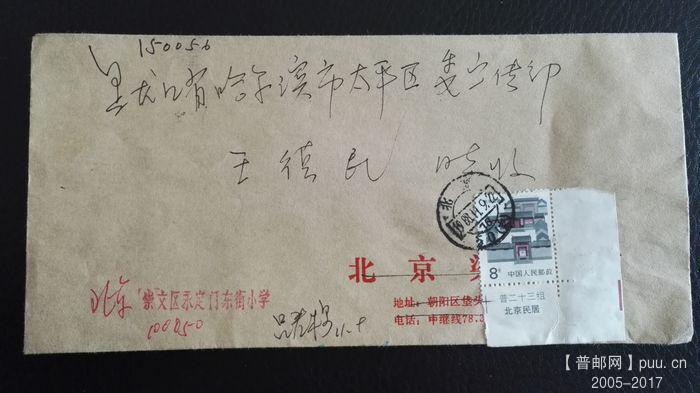 150056
黑龙江省哈尔滨市太平区委宣传部
王德民 收
北京
8分 中国人民邮政
普二十三组
北京民居
北京 崇文区永定门东街小学
100050
地址：朝阳区垡头
电话：中继线78.3
【普邮网】puu.cn
2005-2017